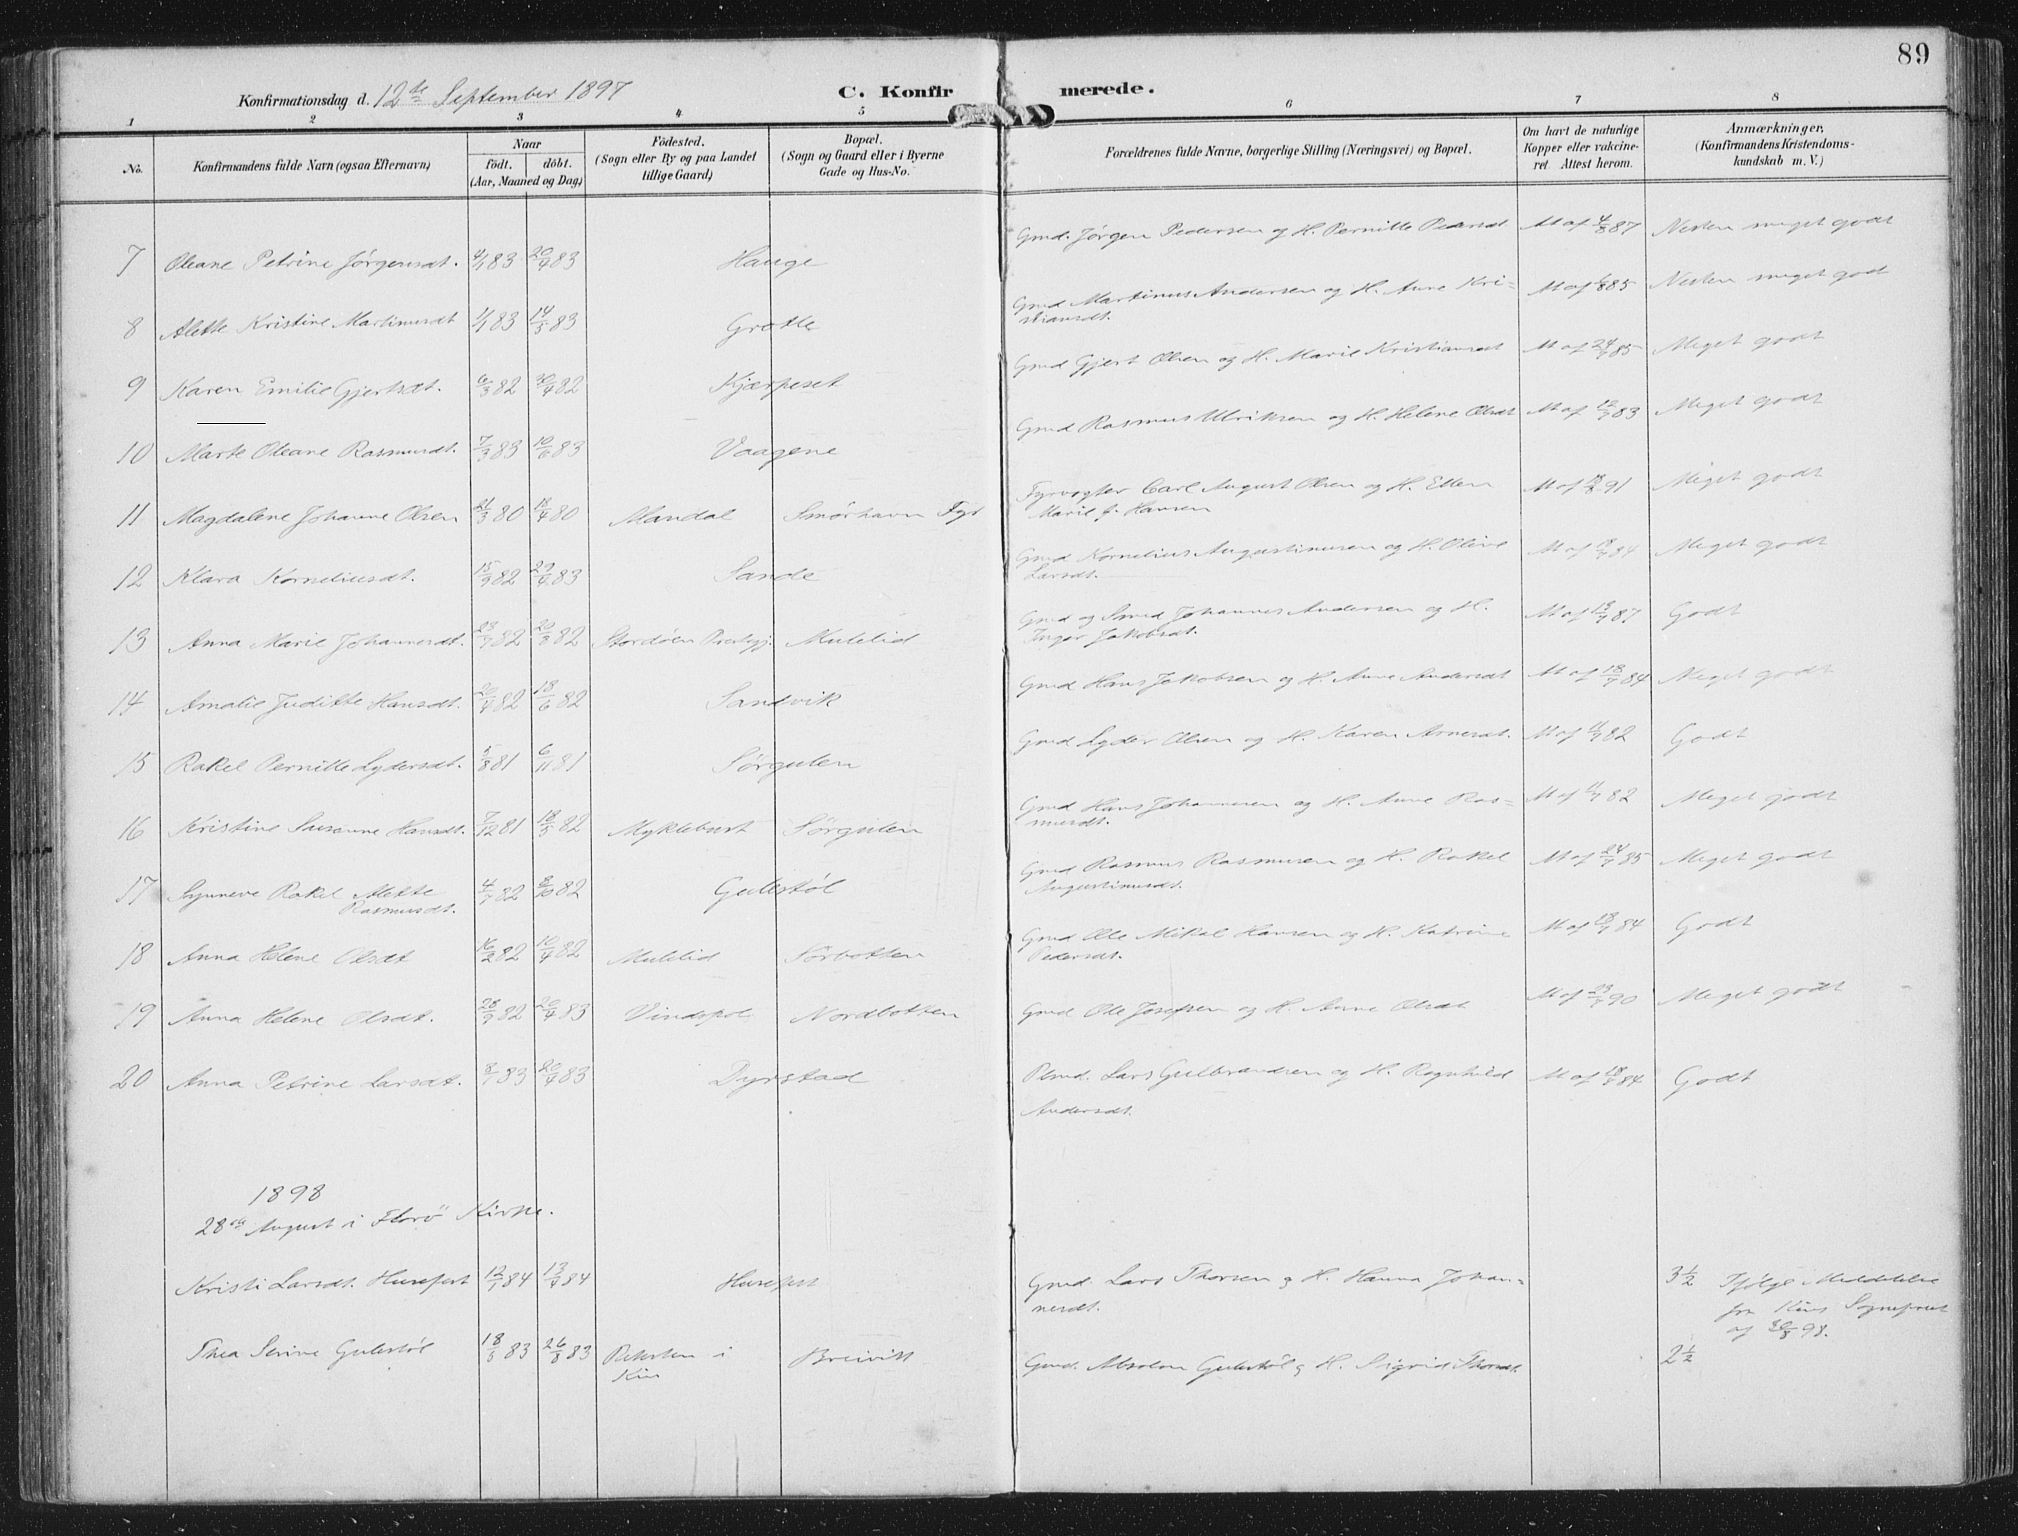 89
Konfirmationsdag d. 12te September 1897
C. Konfirmerede.
1 2 3 4 5 6 7 8
No.
Konfirmandens fulde Navn (ogsaa Efternavn)
Naar
født. døbt.
(Aar, Maaned og Dag)
Fødested.
(Sogn eller By og paa Landet
tillige Gaard)
Bopæl.
(Sogn og Gaard eller i Byerne
Gade og Hus-No.
Forældrenes fulde Navne, borgerlige Stilling (Næringsvei) og Bopæl.
Om havt de naturlige
Kopper eller vakcine-
ret. Attest herom.
Anmærkninger,
(Konfirmandens Kristendoms-
kundskab m. V.)
7 Oleane Petrine Jørgensdt. 4/1 83 20/4 83 Hauge Gmd. Jørgen Pedersen og H. Pernille Pedersdt M af 4/8 87 Nesten meget godt
8 Alette Kristine Martinusdt 1/1 83 14/5 83 Grotle Gmd Martinus Andersen og H. Anne Kri-
stiansdt. M af 85 Nesten meget godt
9 Karen Emilie Gjertsdt. 6/3 82 30/4 82 Kjærpeset Gmd Gjert Olsen og H. Marie Kristiansdt M af 24/7 85 Meget godt
10 Marte Oleane Rasmusdt. 7/3 83 10/6 83 Vaagene Gmd Rasmus Ulriksen og H. Helene Olsdt M af 12/7 83 Meget godt
11 Magdalene Johanne Olsen 21/3 80 18/4 80 Mandal Smørhavn Fyr Fyrvogter Carl August Olsen og H. Ellen
Marie f. Hansen M af 91 Meget godt
12 Klara Korneliusdt. 15/9 82 29/4 83 Sande Gmd Kornelius Augustinusen og H. Oline
Larsdt. M af 84 Meget godt
13 Anna Marie Johannesdt. 23/7 82 20/8 82 Stordøen Prestegj. Mulelid Gmd og Smed Johannes Andersen og H.
Inger Jakobsdt. M af 87 Godt
14 Amalie Juditte Hansdt. 20/4 82 18/6 82 Sandvik Gmd Hans Jakobsen og H. Anne Andersdt M af 18/7 84 Meget godt
15 Rakel Pernille Lydersdt. 5/8 81 6/11 81 Sørgulen Gmd Lyder Olsen og H. Karen Arnesdt. M af 11/7 82 Godt
16 Kristine Susanne Hansdt. 7/12 81 18/5 82 Myklebust Sørgulen Gmd Hans Johannesen og H. Anne Ras-
musdt. M af 11/7 82 Meget godt
17 Synneve Rakel Mette
Rasmusdt. 4/7 82 8/10 82 Gulestøl Gmd Rasmus Rasmusen og H. Rakel
Augustinusdt. M af 24/7 85 Meget godt
18 Anna Helene Olsdt 16/2 82 10/4 82 Mulelid Sørbotten Gmd Ole Mikel Hansen og H. Katrine
Pedersdt. M af 18/7 84 Godt
19 Anna Helene Olsdt. 28/9 82 20/4 83 Vindspol Nordbotten Gmd Ole Josefsen og H. Anne Olsdt M af 90 Meget godt
20 Anna Petrine Larsdt. 8/1 83 20/4 83 Dyrstad Plmd. Lars Gulbrandsen og H. Ragnhild
Andersdt. M af 18/7 84 Godt
1898
28de August i Florø Kirke.
Kristi Larsdt. Husefest 12/1 84 13/4 84 Husefest Gmd. Lars Thorsen og H. Hanna Johan-
nesdt. 3 1/2 Ifølge Meddelelse
fra Kinns Sognepræst
af 30/8 98.
Thea Serine Gulestøl 18/5 83 26/8 83 Reksten i
Kin Breivik Gmd. Absalon Gulestøl og H. Sigrid Thorsdt. 2 1/2